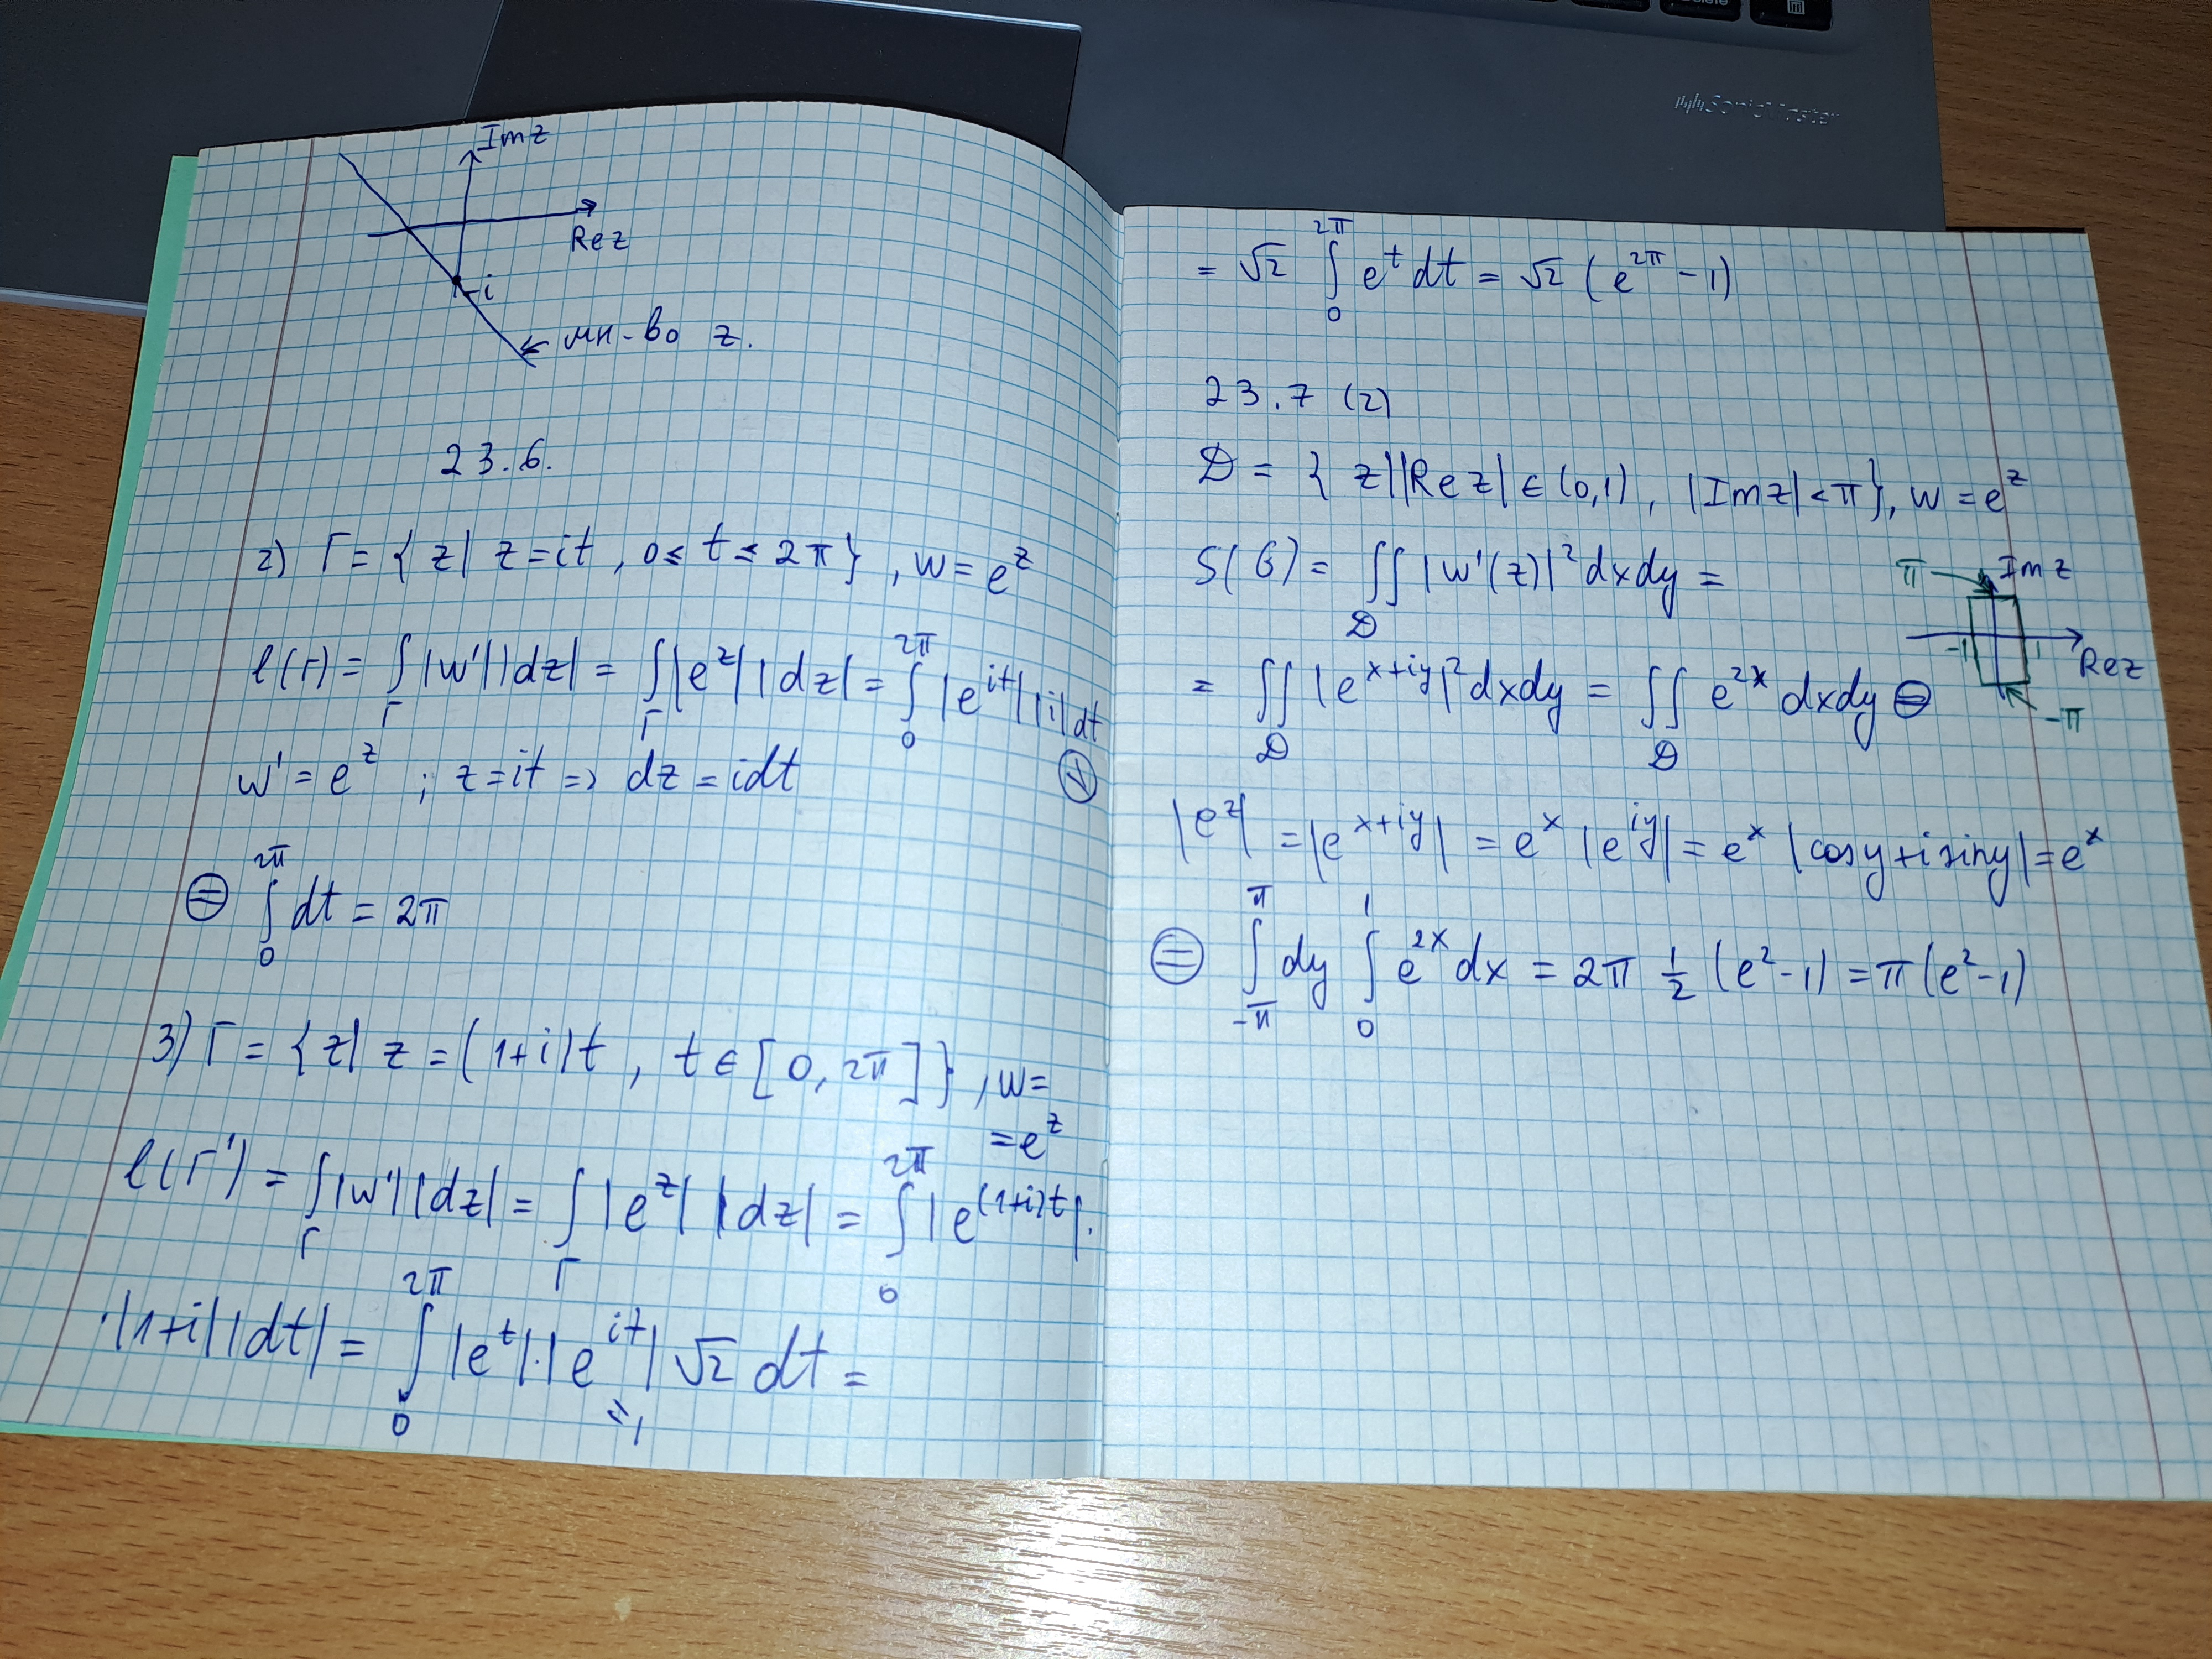 Im z
Re z
-i
← мн-во z.
23.6.
2) Г = { z | z = it, 0 ≤ t ≤ 2π }, w = e^z
l(Г) = ∫_Г |w'||dz| = ∫_Г |e^z||dz| = ∫_0^{2π} |e^{it}||i|dt ⊜
w' = e^z ; z = it => dz = idt
⊜ ∫_0^{2π} dt = 2π
3) Г = { z | z = (1+i)t, t ∈ [0, 2π] }, w =
= e^z
l(Г') = ∫_Г |w'||dz| = ∫_Г |e^z||dz| = ∫_0^{2π} |e^{(1+i)t}|·
·|1+i||dt| = ∫_0^{2π} |e^t|·|e^{it}| √2 dt =
"1
= √2 ∫_0^{2π} e^t dt = √2 (e^{2π} - 1)
23.7 (2)
D = { z | |Re z| ∈ (0,1), |Im z| < π }, w = e^z
S(G) = ∬_D |w'(z)|² dxdy =
= ∬_D |e^{x+iy}|² dxdy = ∬_D e^{2x} dxdy ⊜
π
Im z
-1
1
-π
Re z
|e^z| = |e^{x+iy}| = e^x |e^{iy}| = e^x |cos y + i sin y| = e^x
⊜ ∫_{-π}^{π} dy ∫_0^1 e^{2x} dx = 2π ½ (e² - 1) = π (e² - 1)